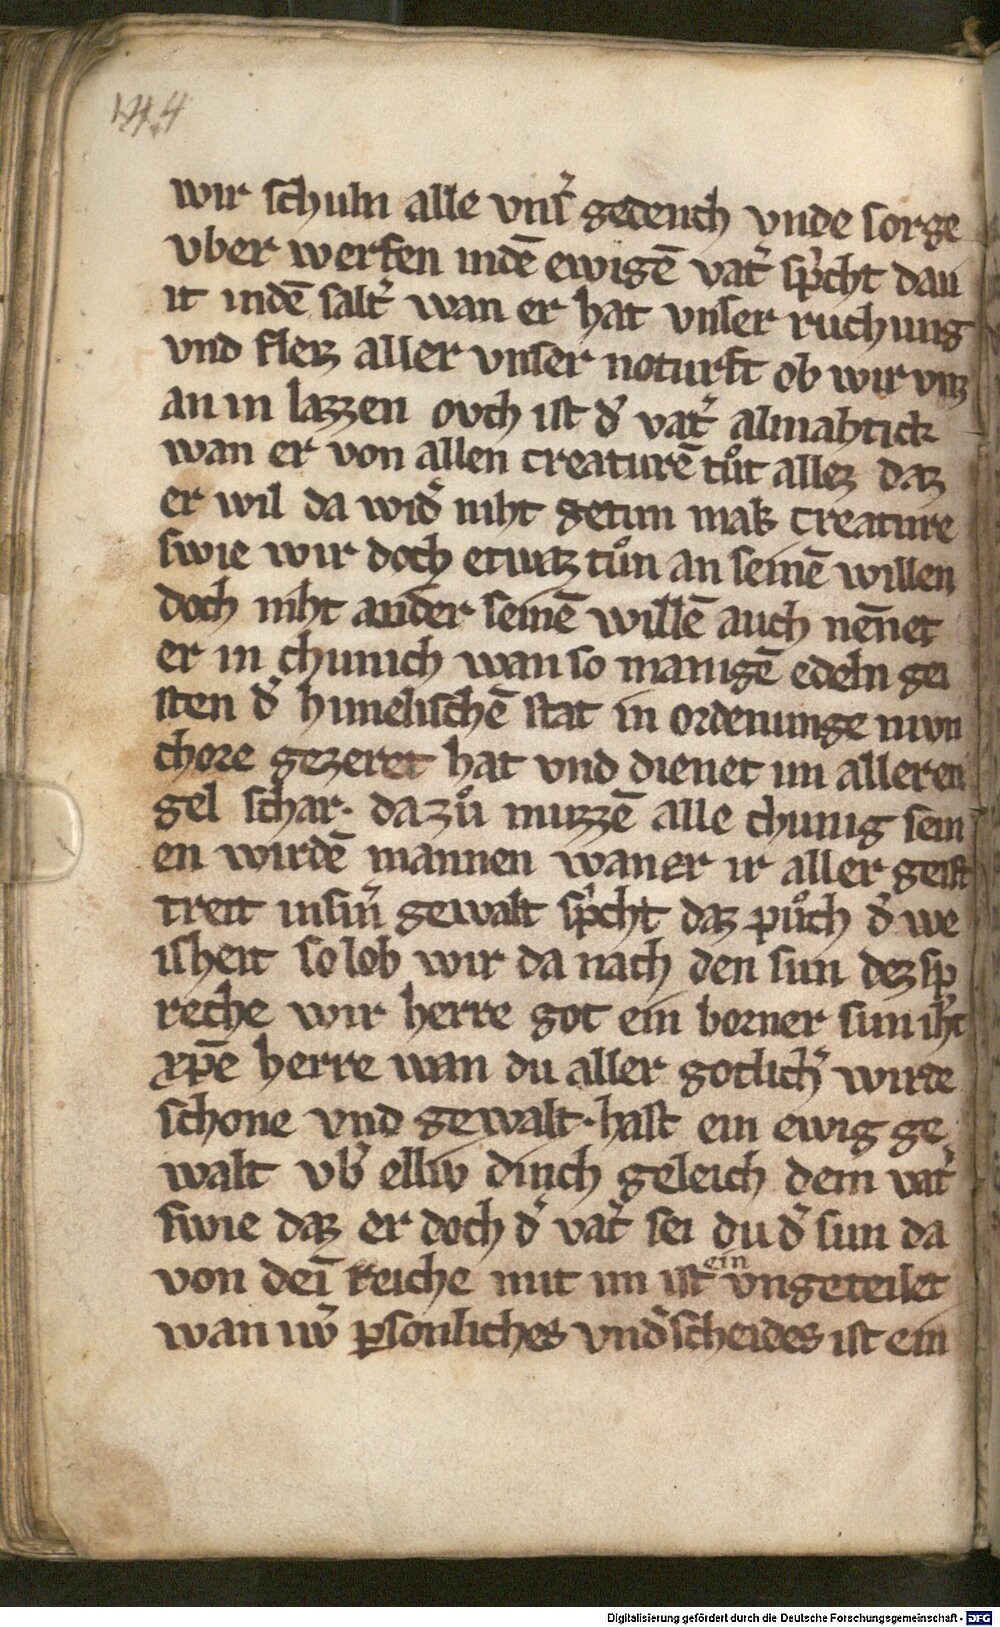 144
wir schuln alle vns͛ gedench vnde sorge
vber werfen indē ewigē vat͛ spͥcht daui
it indē salt͛ wan er hat vnser ruchung
vnd fleiz aller vnser noturft ob wir vnz
an in lazzen ovch ist d͛ vat͛ almahtick
wan er von allen creaturē tůt allez daz
er wil da wid͛ niht getun mak creature
swie wir doch etwaz tůn an seinē willen
doch niht ander seinē willē auch nēnet
er in chunich wan so manigē edeln gei
sten d͛ himelischē stat in ordenunge nivn
chore gezeret hat vnd dienet im alleren
gel schar· dazů muzzē alle chunig sein
en wirdē mannen waner ir aller geist
treit insin͛ gewalt spͥcht daz půch d͛ we
isheit so lob wir da nach den sun dez sp
reche wir herre got ein borner sun ihͥc
xp̄e herre wan du aller gotlich͛ wirde
schone vnd gewalt·hast ein ewig ge
walt vb͛ elliv dinch geleich dem vat͛
swie daz er doch d͛ vat͛ sei du d͛ sun da
von dei̅ reiche mit im ist ein vngeteilet
wan iw͛ ꝑsonliches vnd͛scheides ist ein
Digitalisierung gefördert durch die Deutsche Forschungsgemeinschaft - DFG